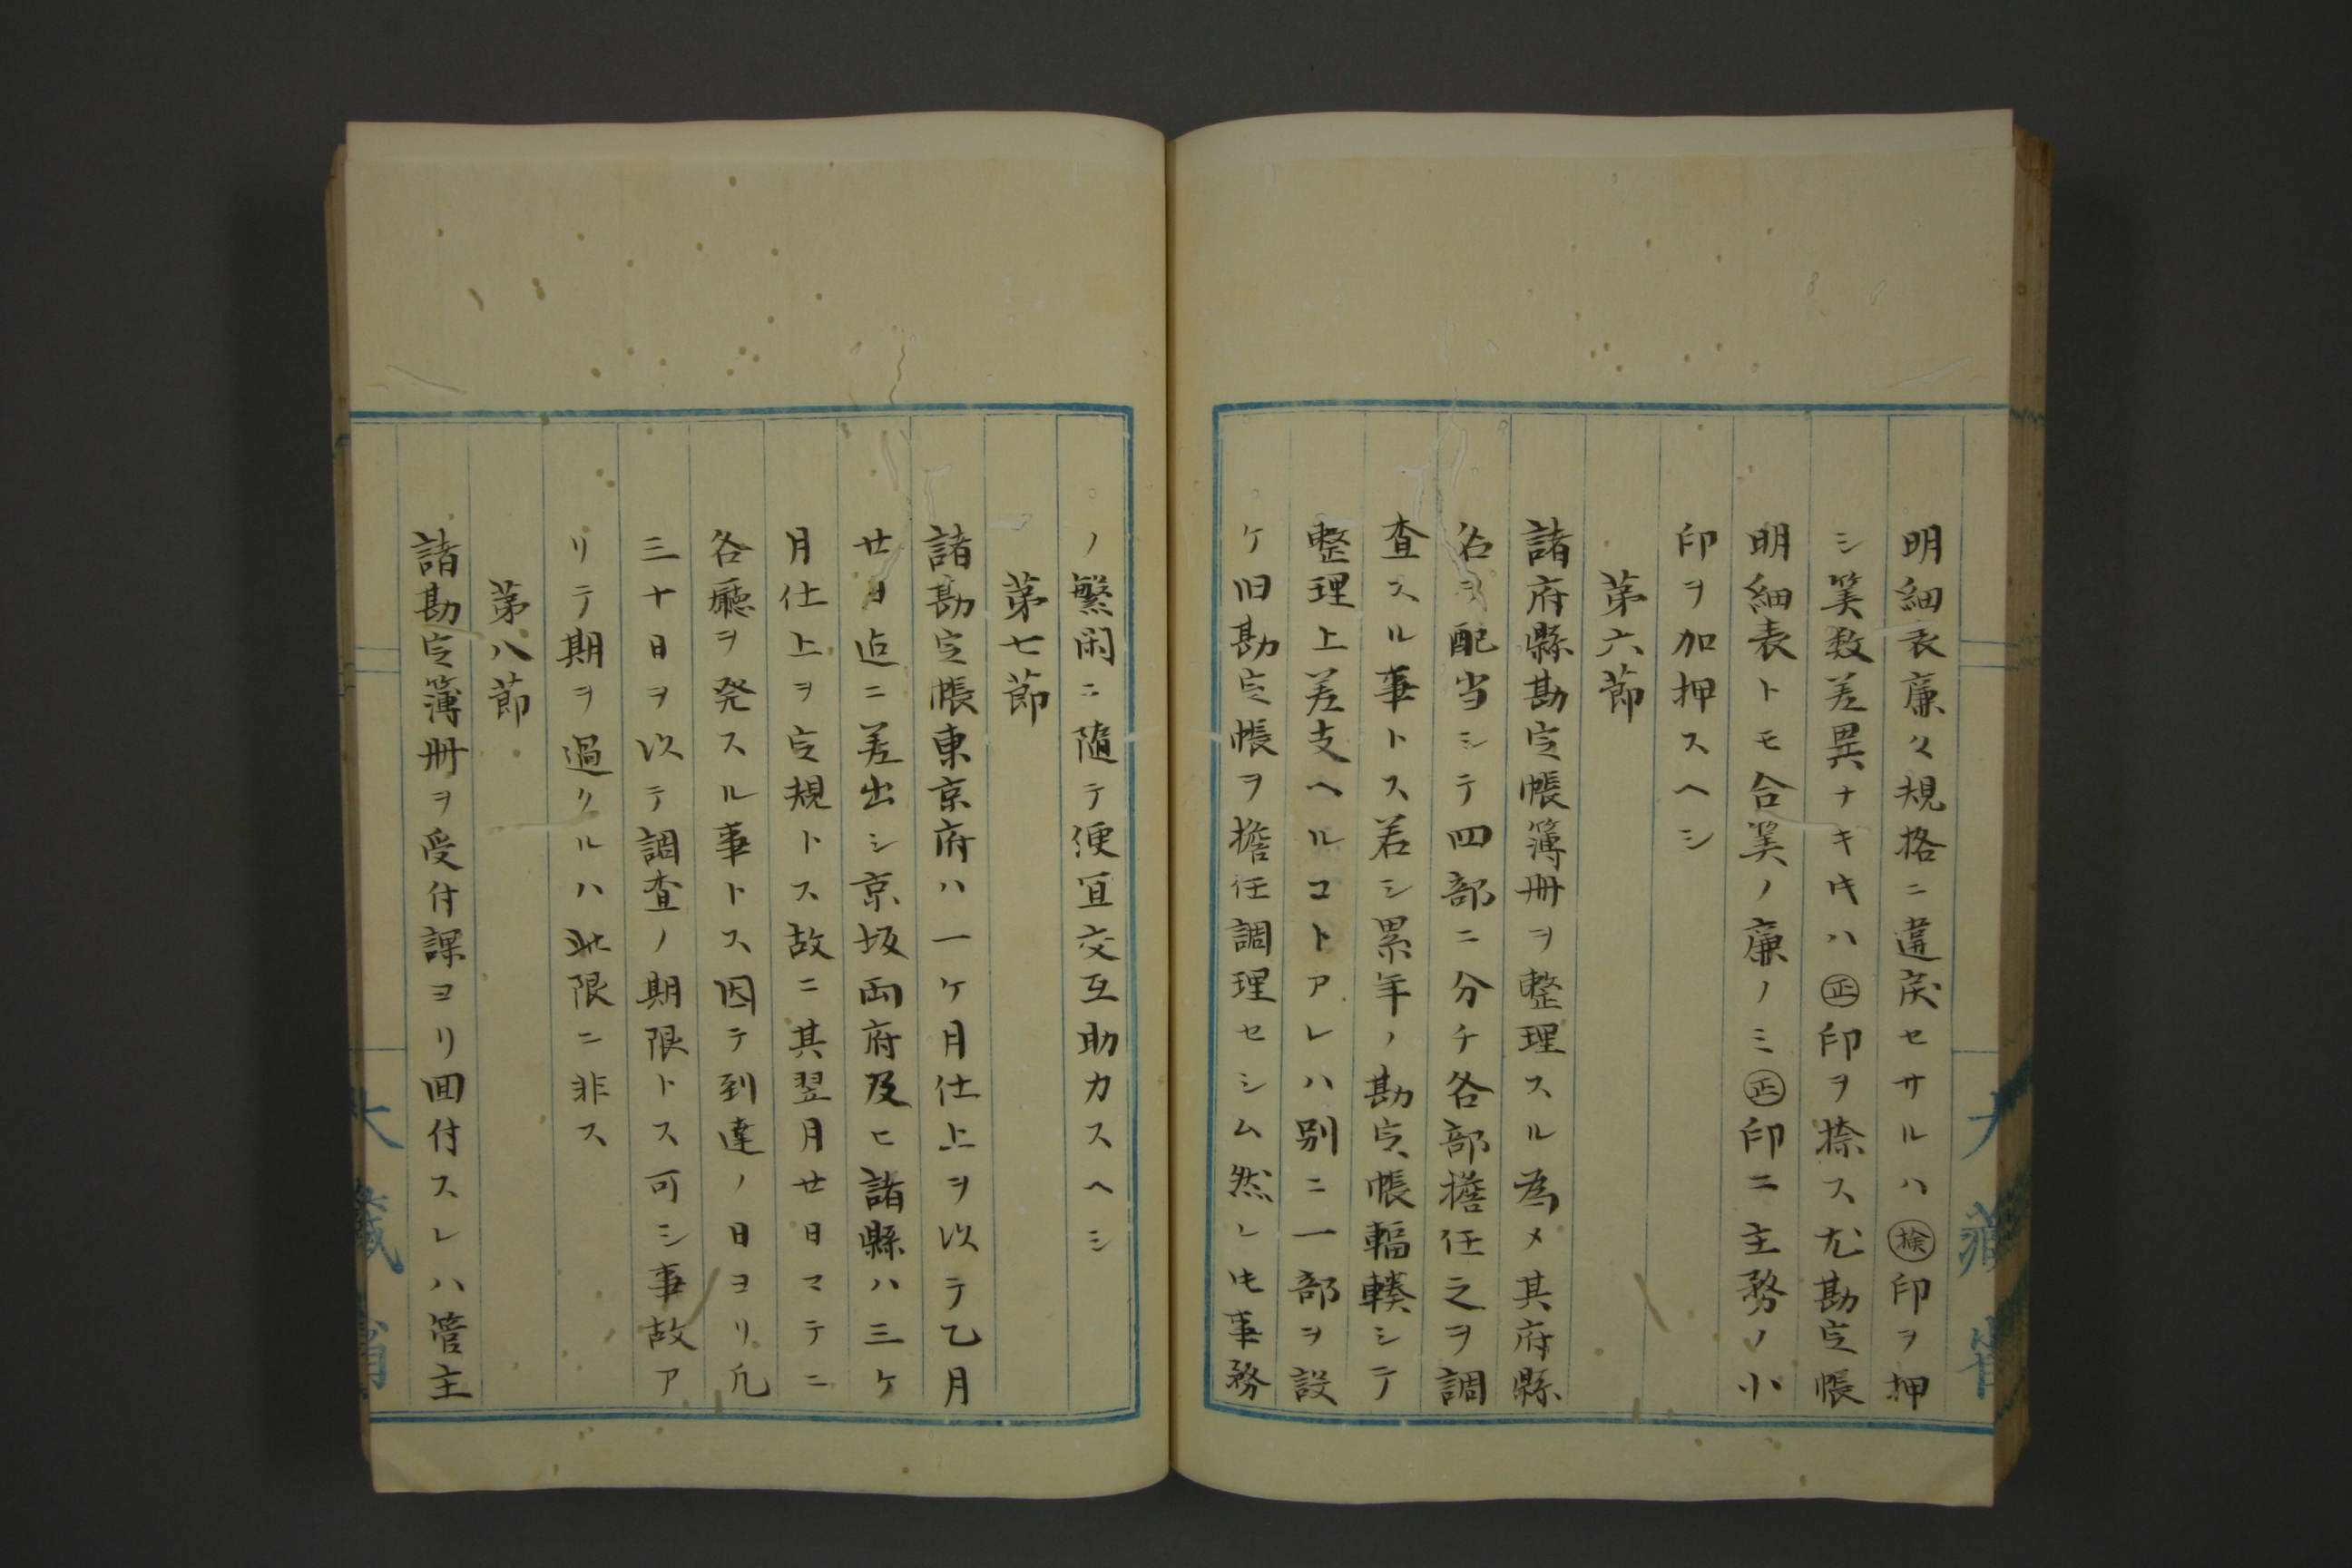 明細表廉々規格ニ違戻セサルハ㊢検印ヲ押
シ筭数差異ナキ𪜈ハ㊣印ヲ捺ス尤勘定帳
明細表トモ合筭ノ廉ノミ㊣印ニ主務ノ小
印ヲ加押スヘシ
第六節
諸府縣勘定帳簿冊ヲ整理スル為メ其府縣
名ヲ配当シテ四部ニ分チ各部擔任之ヲ調
査スル事トス若シ累年ノ勘定帳輻輳シテ
整理上差支ヘルコトアレハ別ニ一部ヲ設
ケ旧勘定帳ヲ擔任調理セシム然レ𪜈事務
ノ繁閑ニ随テ便宜交互助力スヘシ
第七節
諸勘定帳東京府ハ一ケ月仕上ヲ以テ乙月
廿日迠ニ差出シ京坂両府及ヒ諸縣ハ三ケ
月仕上ヲ定規トス故ニ其翌月廿日マテニ
各廳ヲ発スル事トス因テ到達ノ日ヨリ凡
三十日ヲ以テ調査ノ期限トス可シ事故ア
リテ期ヲ過クルハ此限ニ非ス
第八節
諸勘定簿冊ヲ受付課ヨリ回付スレハ管主
大藏省